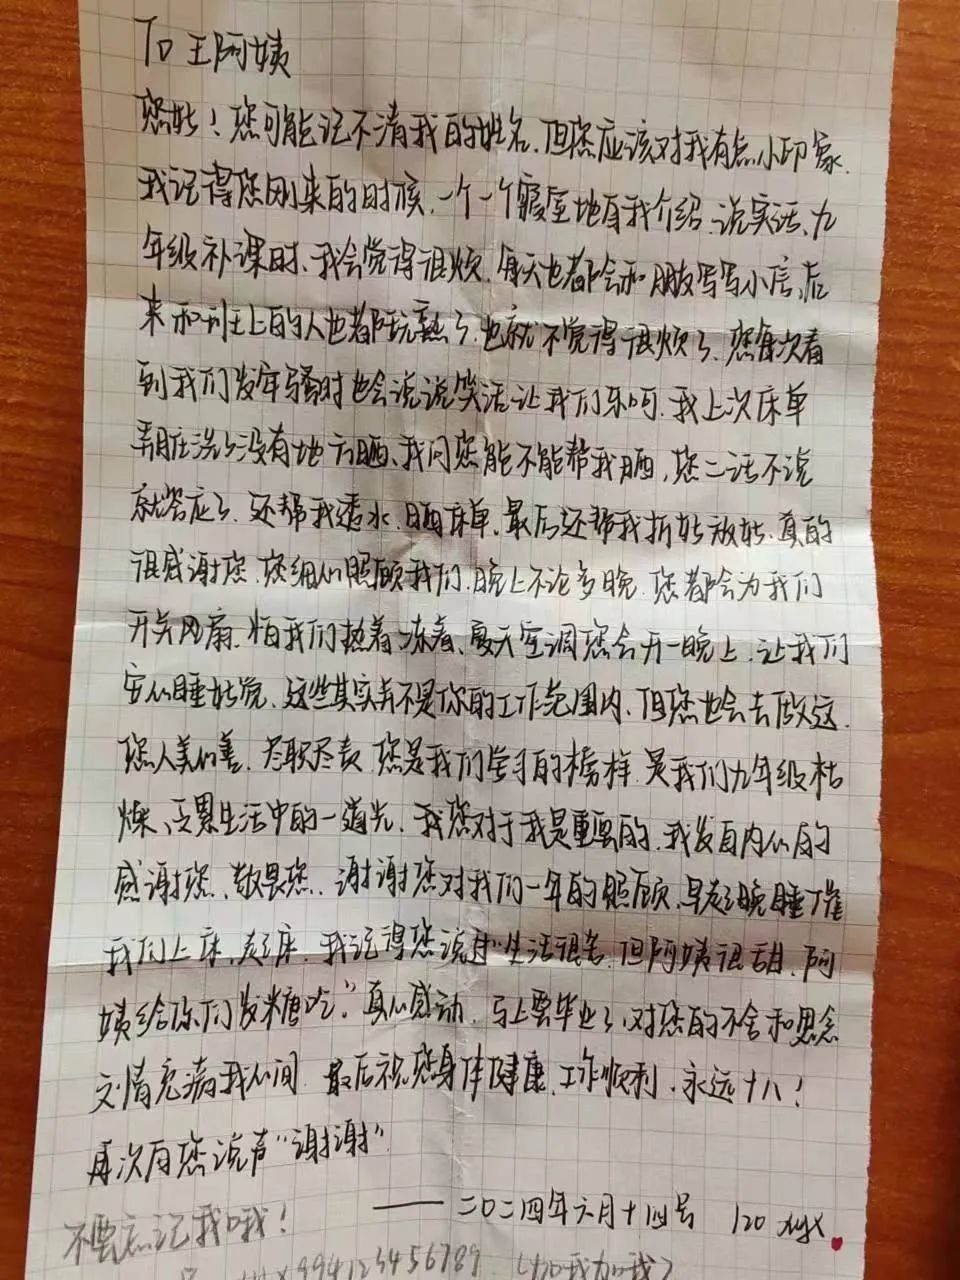 To 王阿姨
您好！您可能记不清我的姓名，但您应该对我有点小印象，
我记得您刚来的时候，一个一个寝室地自我介绍，说实话，九
年级补课时、我会觉得很烦，每天也都会和朋友写写小信，后
来和班上的人也都玩熟了，也就不觉得很烦了，您每次看
到我们发牢骚时也会说说笑话让我们乐呵，我上次床单
弄脏洗了没有地方晒、我问您能不能帮我晒，您二话不说
就答应了、还帮我透水、晒床单，最后还帮我折好放好、真的
很感谢您，您细心照顾我们，晚上不论多晚，您都会为我们
开关风扇，怕我们热着、冻着、夏天空调您会开一晚上，让我们
安心睡好觉，这些其实并不是你的工作范围内，但您也会去做这，
您人美心善，尽职尽责，您是我们学习的榜样，是我们九年级枯
燥、乏累生活中的一道光、我您对于我是重要的，我发自内心的
感谢您、敬畏您，谢谢您对我们一年的照顾，早起晚睡催
我们上床，起床，我记得您说过“生活很苦，但阿姨很甜，阿
姨给你们发糖吃”真心感动，马上要毕业了，对您的不舍和思念
之情充满我心间，最后祝您身体健康，工作顺利，永远十八！
再次向您说声“谢谢”
——二〇二四年六月十四号 120
不要忘记我哦！
994123456789（加我加我）